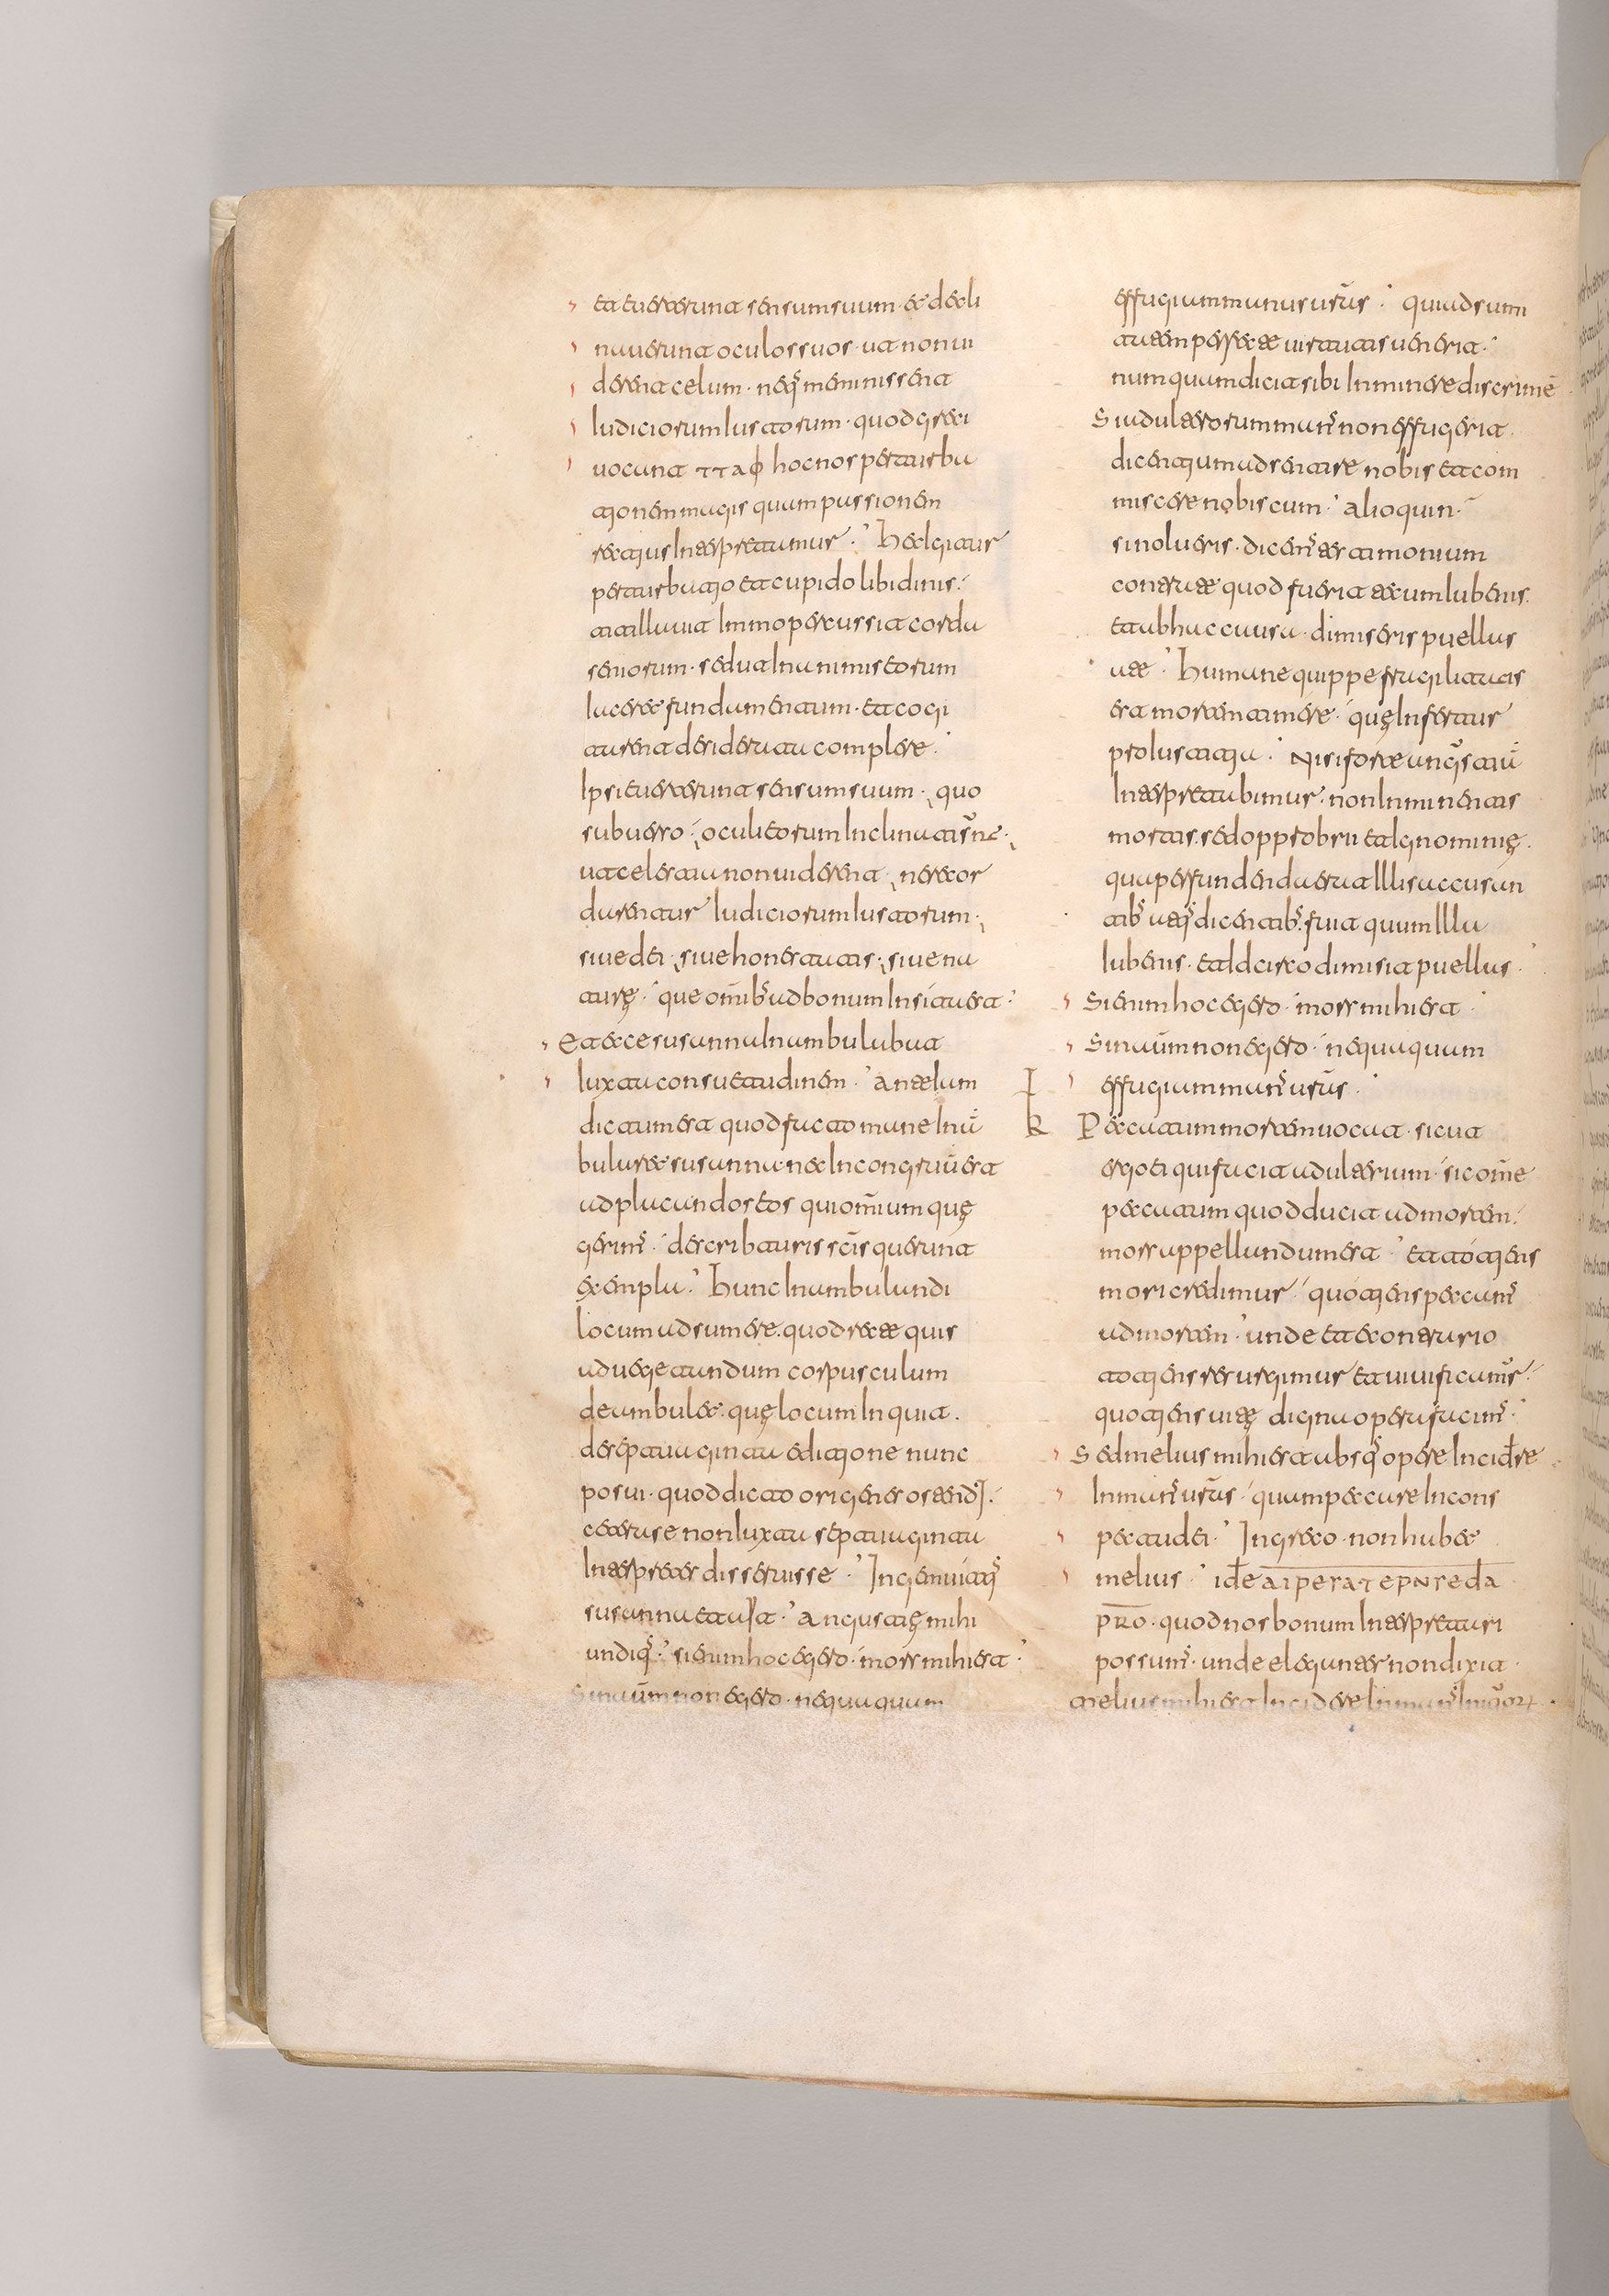 et euerterunt sensum suum · et decli
nauerunt oculos suos · ut non ui
derent celum · neq; meminissent
Iudiciorum Iustorum · quod greci
uocant hoc nos perturba
tionem magis quam passionem
rectius Interpretamur · Hec Igitur
perturbatio et cupido libidinis ·
titillauit Immo percussit corda
seniorum · sed ut In animis eorum
Iaceret fundamentum · et cogi
tarent desiderata complere ·
Ipsi euerterunt sensum suum · quo
subuerso · oculi eorum Inclinati s̄ne ·
ut celestia non uiderent · ne recor
darentur Iudiciorum Iustorum ·
siue dei · siue honestatis · siue na
turę · que om̄ib; ad bonum Insita est ·
Et ecce susanna Inambulabat
Iuxta consuetudinem · Antelum
dictum est quod facto mane Inā
bularet susanna · nec Incongruū est
ad placandos eos qui om̄ium quę
gerim; describturis scīs querunt
exempla · Hunc Inambulandi
locum adsumere · quod recte quis
ad uegetandum corpusculum
deambulet · quę locum Inquit ·
de septuaginta editione nunc
posui · quod dicto origenes ostend ·
cetera se non Iuxta septuaginta
Interpretes disseruisse · Ingemuitq;
susanna et ait · Angustię mihi
undiq; · si enim hoc egero · mors mihi est ·
Sin autem non egero · nequaquam
effugiam manus uras · qui ad sum
mam perfecte uirtutis uenerit ·
numquam dicit sibi Inminere discrimē
Si adulterorum man; non effugerit ·
dicentium adsentire nobis et com
miscere nobiscum · Alioquin ·
si nolueris · dicem; testimonium
contra te quod fuerit tecum Iubenis ·
et ab hac causa · dimiseris puellas
a te · Humane quippe fragilitatis
est mortem timere · quę Infertur
pro Iustitia · Nisi forte angustiā
Interpretabimur · non Inminentis
mortis · sed opprobrii et Ignominię ·
qua perfundenda erat Illis accusan
tib; atq; dicentib; · fuit quum Illa
Iubenis · et Idcirco dimisit puellas ·
Si enim hoc egero · mors mihi est ·
Sin autē non egero · nequaquam
effugiam man; uras ·
R Peccatum mortem uocat · sicut
ergo ei qui facit adulterium · sic om̄e
peccatum quod ducit ad mortem ·
mors appellandum est · et totiens
mori credimur · quotiens peccam;
ad mortem · unde et e contrario
totiens resurgimus et uiuificam; ·
quotiens uitę digna opera facim; ·
Sed melius mihi est absq; opere Incidere
In man; uras · quam peccare In cons
pectu dei · In greco · non habet
melius ·
PRO · quod nos bonum Interpretari
possum; · unde eleganter non dixit ·
Melius mihi est Incidere In man;